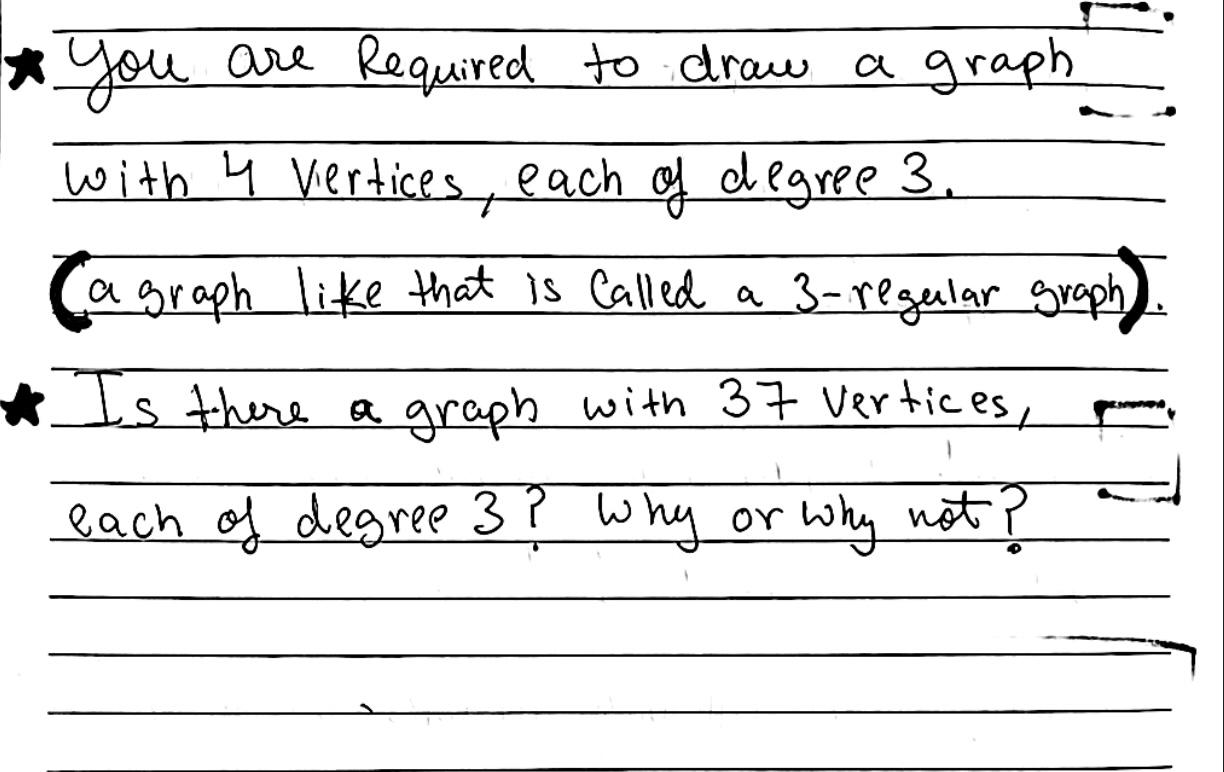 ★ You are Required to draw a graph
with 4 Vertices, each of degree 3.
(a graph like that is Called a 3-regular graph).
★ Is there a graph with 37 Vertices,
each of degree 3? Why or Why not?